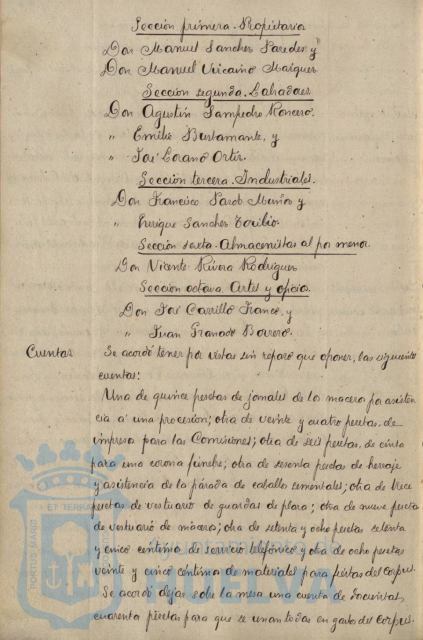 Sección primera. Propietaria
Don Manuel Sanchez Paredes y
Don Manuel Vizcaino Marquez
Sección segunda. Labradores
Don Agustín Sampedro Roncero.
" Emilio Bustamante, y
" José Lorano Ortiz.
Sección tercera. Industriales.
Don Francisco Muñoz y
" Enrique Sanchez
Sección sexta. Almacenistas al por menor
Don Vicente Rivera Rodriguez
Sección octava. Artes y oficio.
Don José Carrillo Franco, y
" Juan Granado Borrero.
Cuentas
Se acordó tener por vistas sin reparo que oponer, las siguiente
cuentas:
Una de quince pesetas de jornales de lo maceros por asisten
cia á una procesion; otra de veinte y cuatro pesetas, de
impresos para las Comisiones; otra de seis pesetas, de cinta
para una corona fúnebre; otra de sesenta pesetas de herraje
y asistencia de la párada de caballo sementales; otra de trece
pesetas de vestuario de guardas de plaza; otra de nueve pesetas
de vestuario de macero; otra de setenta y ocho pesetas setenta
y cinco centimo de servicio telefónico y otra de ocho pesetas
veinte y cinco céntimo de materiales para fiestas del Corpus.
Se acordó dejar sobre la mesa una cuenta de doscientas,
cuarenta pesetas para que se unan todas en gasto del Corpus.
PORTUS MARIS
ET TERRAE
Ayuntamiento de
HUELVA